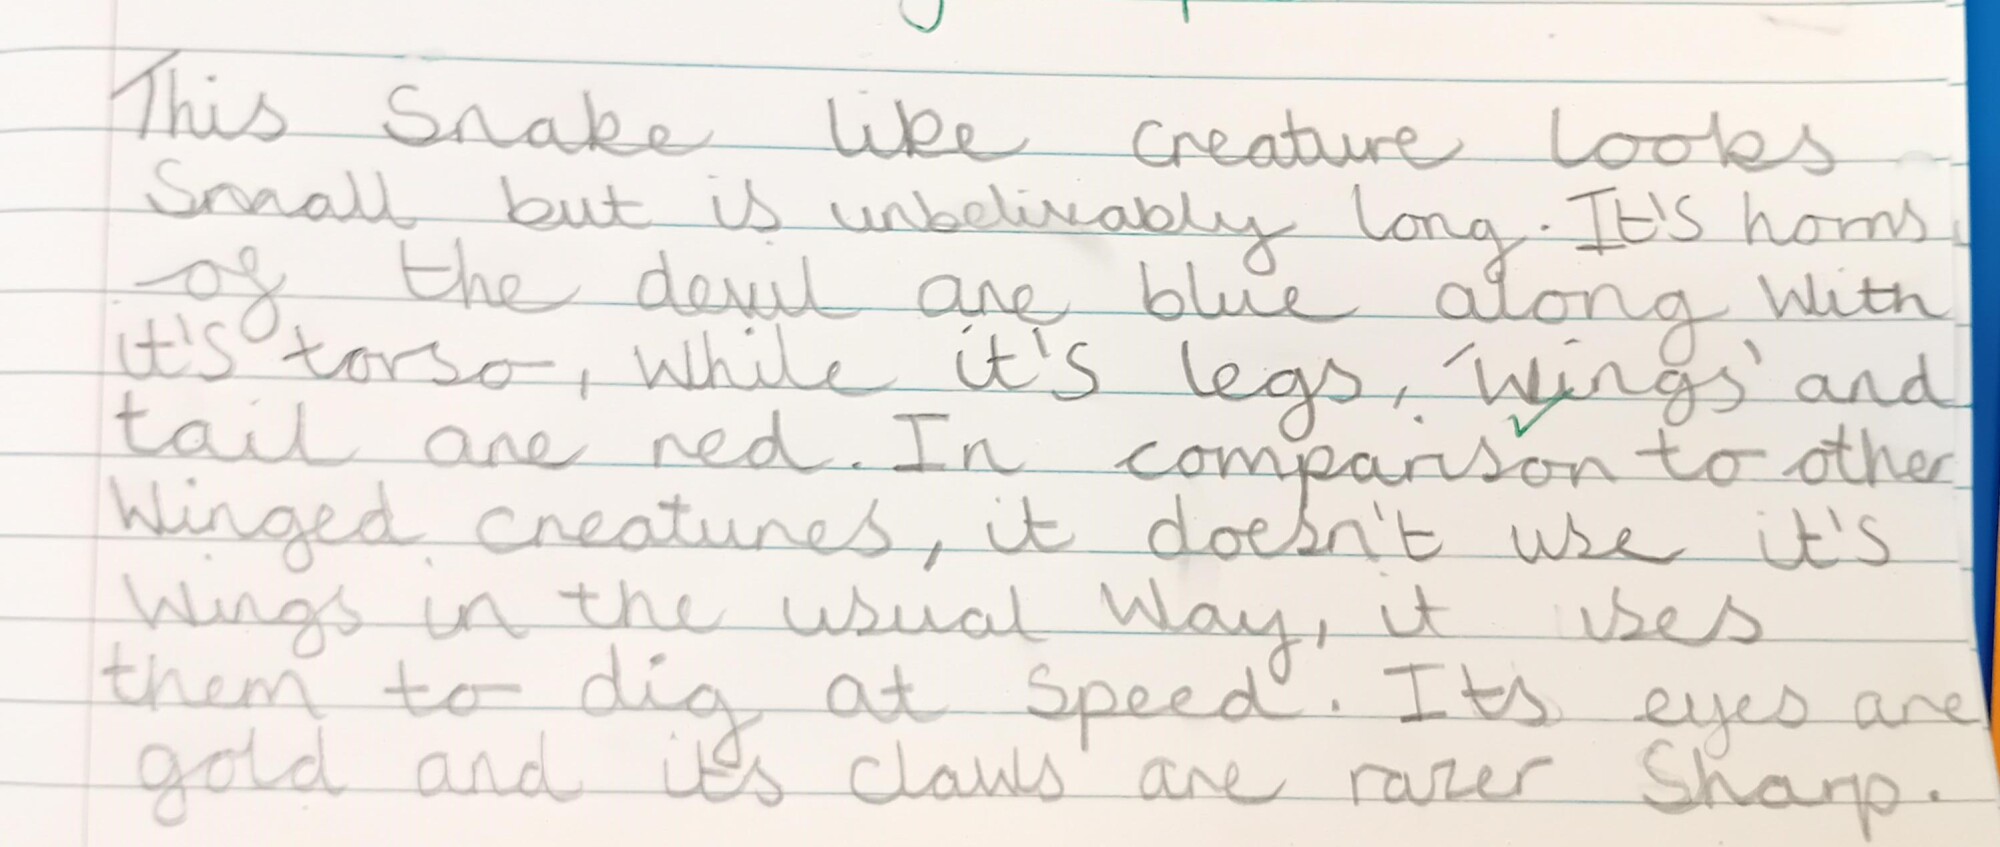 This Snake like creature looks
Small but is unbelivably long. It's horns
of the devil are blue along with
it's torso, while it's legs, 'wings' and
tail are red. In comparison to other
winged creatures, it doesn't use it's
wings in the usual way, it uses
them to dig at speed. Its eyes are
gold and its claws are razer sharp.